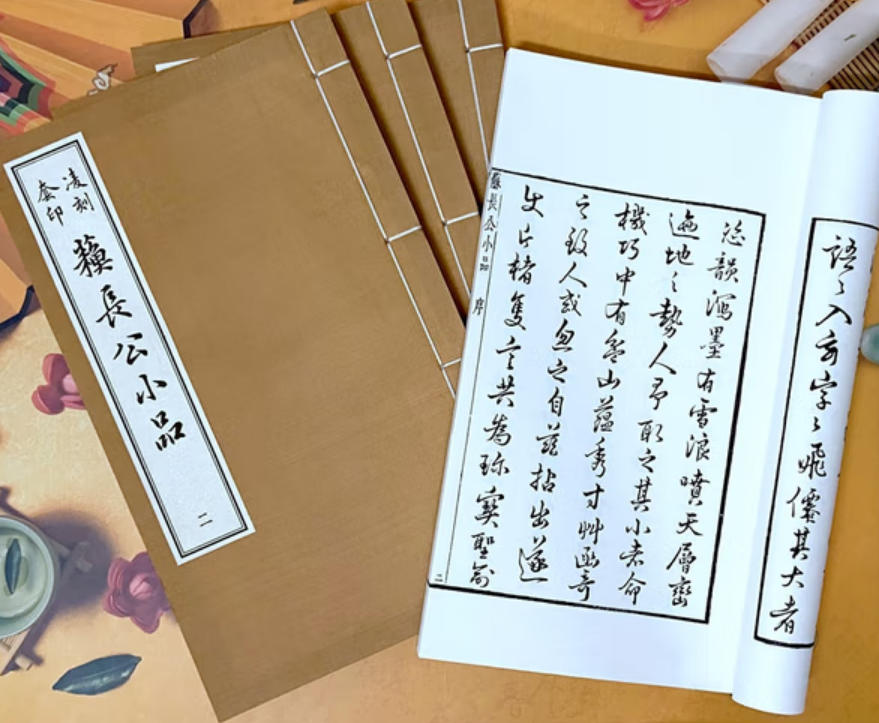 凌刻
套印
蘓長公小品
二
語〻入玄字〻飛僊其大者
恣韻瀉墨有雪浪噴天層巒
遍地之勢人爭取之其小者命
機巧中有盆山蘊秀寸艸函奇
之致人或忽之自茲拈出遂
使片楮隻言共為珎寶聖俞
蘇長公小品 序 二